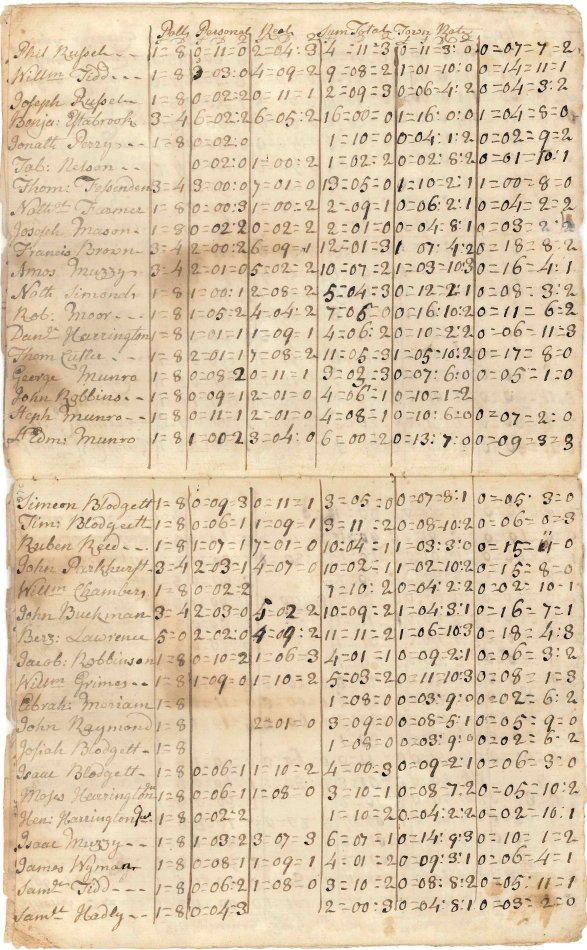 Polls Personal Real Sum Total Town Rate
Phil Russel - - 1=8 0=11=0 2=04:3 4=11=3 0=11=3:0 0=07=7=2
Willm Tidd - - - 1=8 03:0 4=09=2 9=08=2 1=01=10:0 0=14=11=1
Joseph Russel - 1=8 0=02:2 0=11=0 2=09=3 0=06=4:2 0=04=3:2
Benja: Estabrook 3=4 6=02=2 6=05:2 16=00=0 1=16:0:0 1=04=8=0
Jonath Perry - - 1=8 0=02:0 1=10=0 0=04:1:2 0=02=9=2
Tab: Nelson - - 0=02:0 1=00:2 1=02:2 0=02:8:2 0=01=10:1
Thom: Fessenden 3=4 3=00:0 7=01=0 13=05=0 1=10=2:1 1=00=8=0
Nath Farmer 1=8 0=00:3 1=00=2 2=09=1 0=06:2:1 0=04=2=2
Joseph Mason - 1=8 0=02:2 0=02=2 2=01=0 0=04:8:1 0=03=2:2
Francis Brown - 3=4 2=00:2 6=09=1 12=01=3 1=07:4:2 0=18=8=2
Amos Muzzy - 3=4 2=01=0 5=02=2 10=07=2 1=03=10:3 0=16=4:1
Nath Simonds 1=8 1=00:1 2=08=2 5=04=3 0=12=2:1 0=08=3:2
Rob: Moor - - 1=8 1=05=2 4=04:2 7=06=0 0=16:10:2 0=11=6=2
Danl Harrington 1=8 1=01=1 1=09=1 4=06:2 0=10=2:2 0=06=11=3
Thom Cutler - - 1=8 2=01=1 7=08=2 11=05=3 1=05=10:2 0=17=8=0
George Munro 1=8 0=08=2 0=11=1 3=02=3 0=07=6:0 0=05=1=0
John Robbins - - 1=8 0=09=1 2=01=0 4=06=1 0=10=1=2
Steph Munro - - 1=8 0=11=1 2=01=0 4=08=1 0=10=6:0 0=07=2:0
Lt Edm: Munro 1=8 1=00=2 3=04:0 6=00=2 0=13:7:0 0=09=3=3
Simeon Blodgett 1=8 0=09=3 0=11=1 3=05=0 0=07=8:1 0=05:3=0
Tim: Blodgett 1=8 0=06=1 1=09=1 3=11=2 0=08=10:2 0=06=0=3
Ruben Reed - - 1=8 1=07=1 7=01=0 10=04=1 1=03:3:0 0=15=11=0
John Parkhurst - 3=4 2=03=1 4=07=0 10=02=1 1=02=10:2 0=15=8=0
Willm Chambers 1=8 0=02=2 1=10:2 0=04:2:2 0=02=10=1
John Buckman 3=4 2=03=0 5=02=2 10=09=2 1=04:3:1 0=16=7=1
Benj: Lawrence 5=0 2=02:0 4=09:2 11=11=2 1=06=10:3 0=18=4:3
Jacob: Robbinson 1=8 0=10=2 1=06=3 4=01=1 0=09=2:1 0=06=3:2
Willm Grimes - - 1=8 1=09=0 1=10=2 5=03=2 0=11=10:3 0=08=1=3
Ebrah: Merriam 1=8 1=08=0 0=03=9:0 0=02=6:2
John Raymond 1=8 2=01=0 3=09=0 0=08=5:1 0=05=9=0
Josiah Blodgett - 1=8 1=08=0 0=03=9:0 0=02=6=2
Isaac Blodgett - 1=8 0=06=1 1=10=2 4=00=3 0=09=2:1 0=06=3=0
Moses Harrington Jun 1=8 0=06=1 1=08=0 3=10=1 0=08=7:2 0=05=10:2
Hen: Harrington Jun 1=8 0=02=2 1=10=2 0=04:2:2 0=02=10:1
Isaac Muzzy - - 1=8 1=03=2 3=07=3 6=07=1 0=14:9:3 0=10=1=2
James Wyman 1=8 0=08=1 1=09=1 4=01=2 0=09:3:1 0=06=4=1
Samll Tidd - - - 1=8 0=06:2 1=08=0 3=10=2 0=08:8:2 0=05=11=1
Samll Hadly - - 1=8 0=04:3 2=00=3 0=04:8:1 0=03=2=0